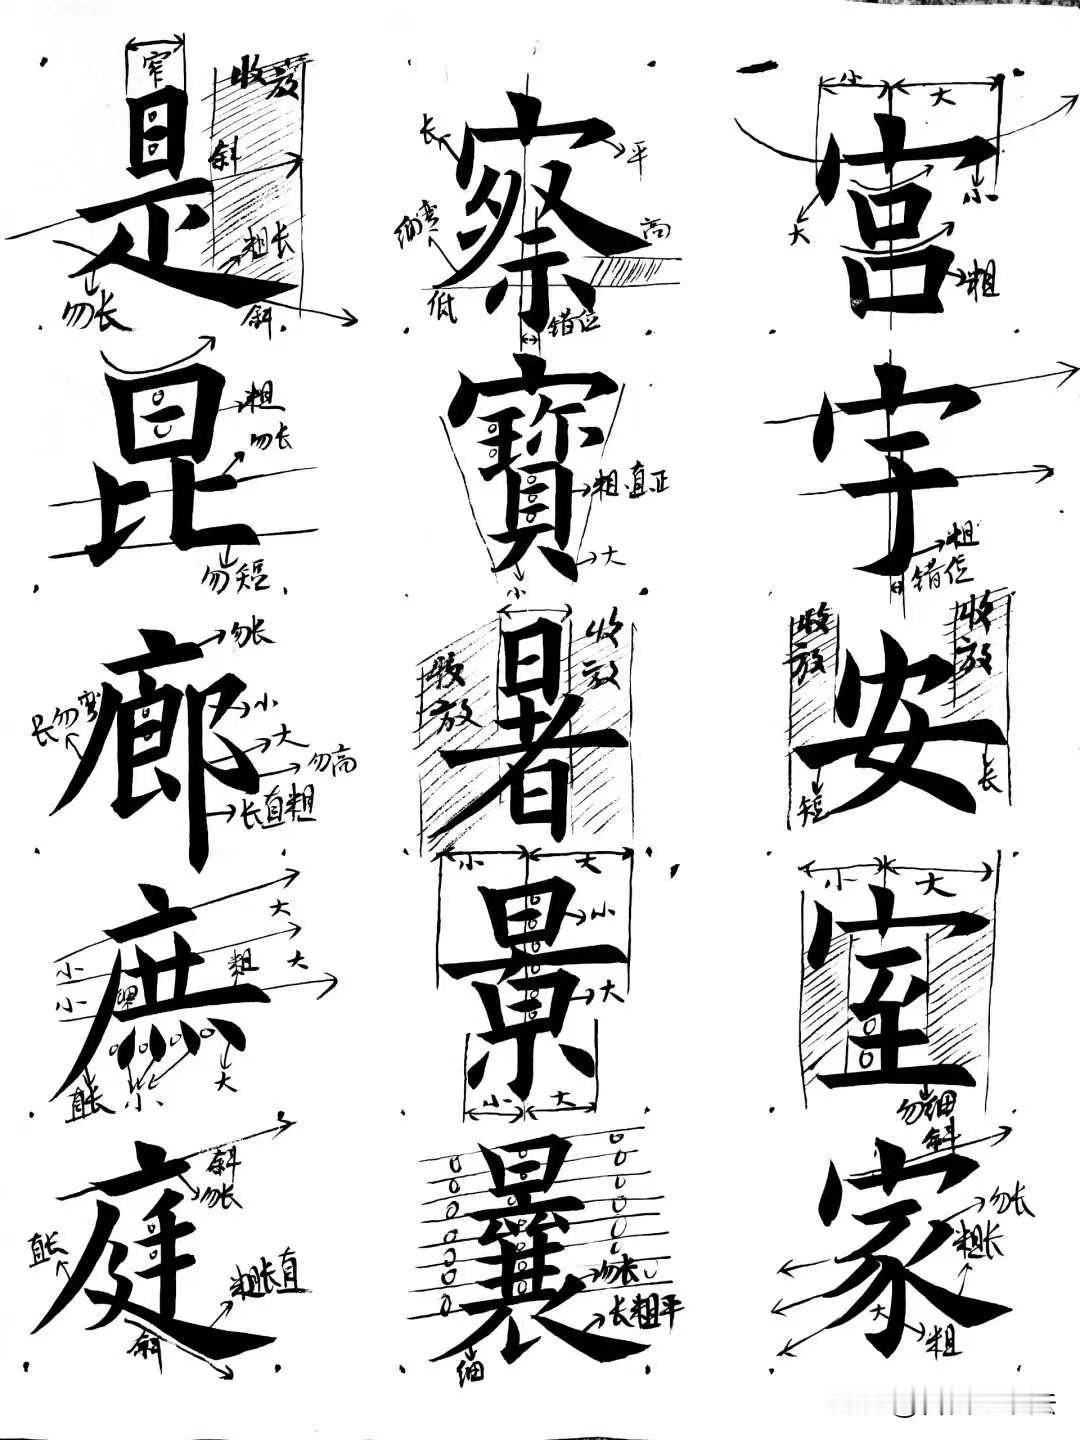 窄 收放
是
斜
粗长
勿长 斜
长 平
察
细弯 高
低 错位
小 大
宫
大 小
粗
昆
粗
勿长
勿短
寶
粗直正
大
小
宇
粗
错位
勿长
廊
长勿弯 小
大
勿高
长直粗
收放 收放
暑
收放 收放
安
短 长
大
庶
小 粗 大
小
直长 小 大
小 大
景
小
大
小 大
小 大
室
勿细
斜
勿长
庭
直长 粗长直
斜
曩
勿长
长粗平
细
斜
家
勿长
粗长
大
粗